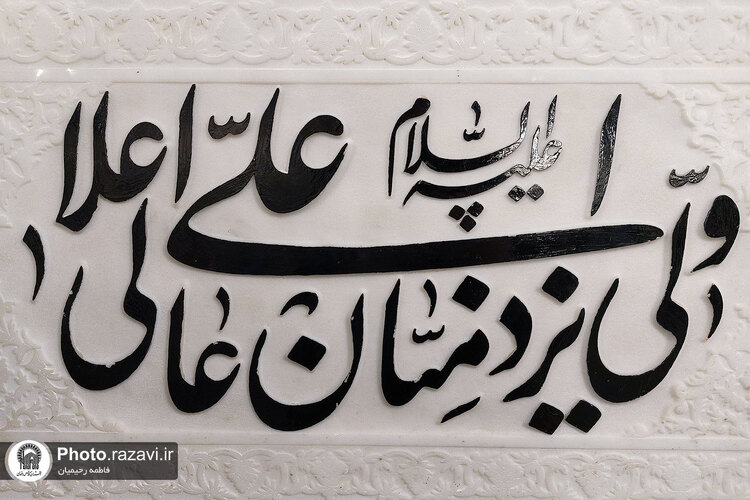 ولیّ ایزد منّان علیّ عالی اعلا
علیه السّلام
Photo.razavi.ir
فاطمه رحیمیان